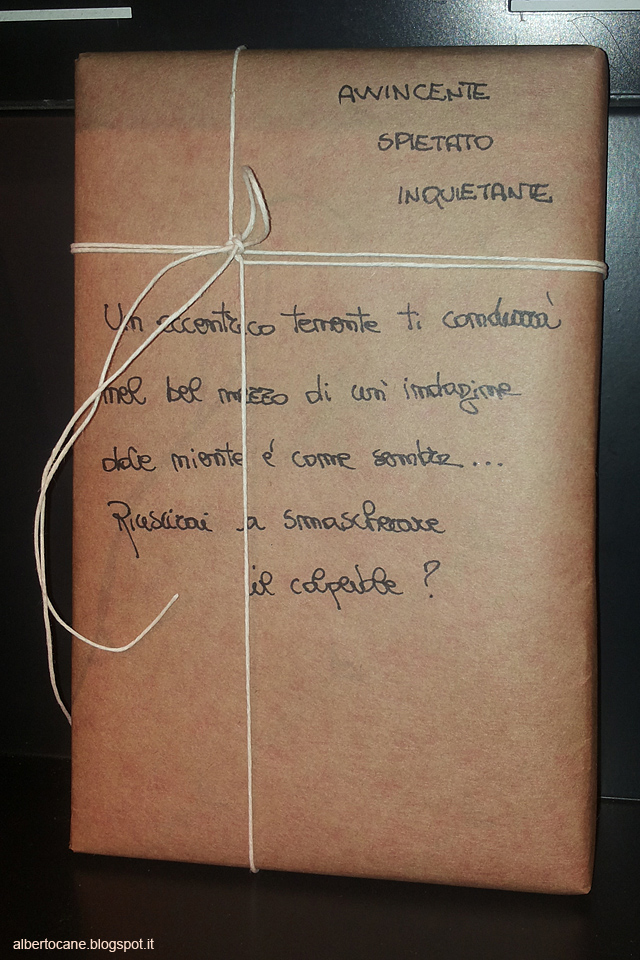 AVVINCENTE
SPIETATO
INQUIETANTE
Un eccentrico tenente ti condurrà
nel bel mezzo di un'indagine
dove niente é come sembra...
Riuscirai a smascherare
il colpevole?
albertocane.blogspot.it